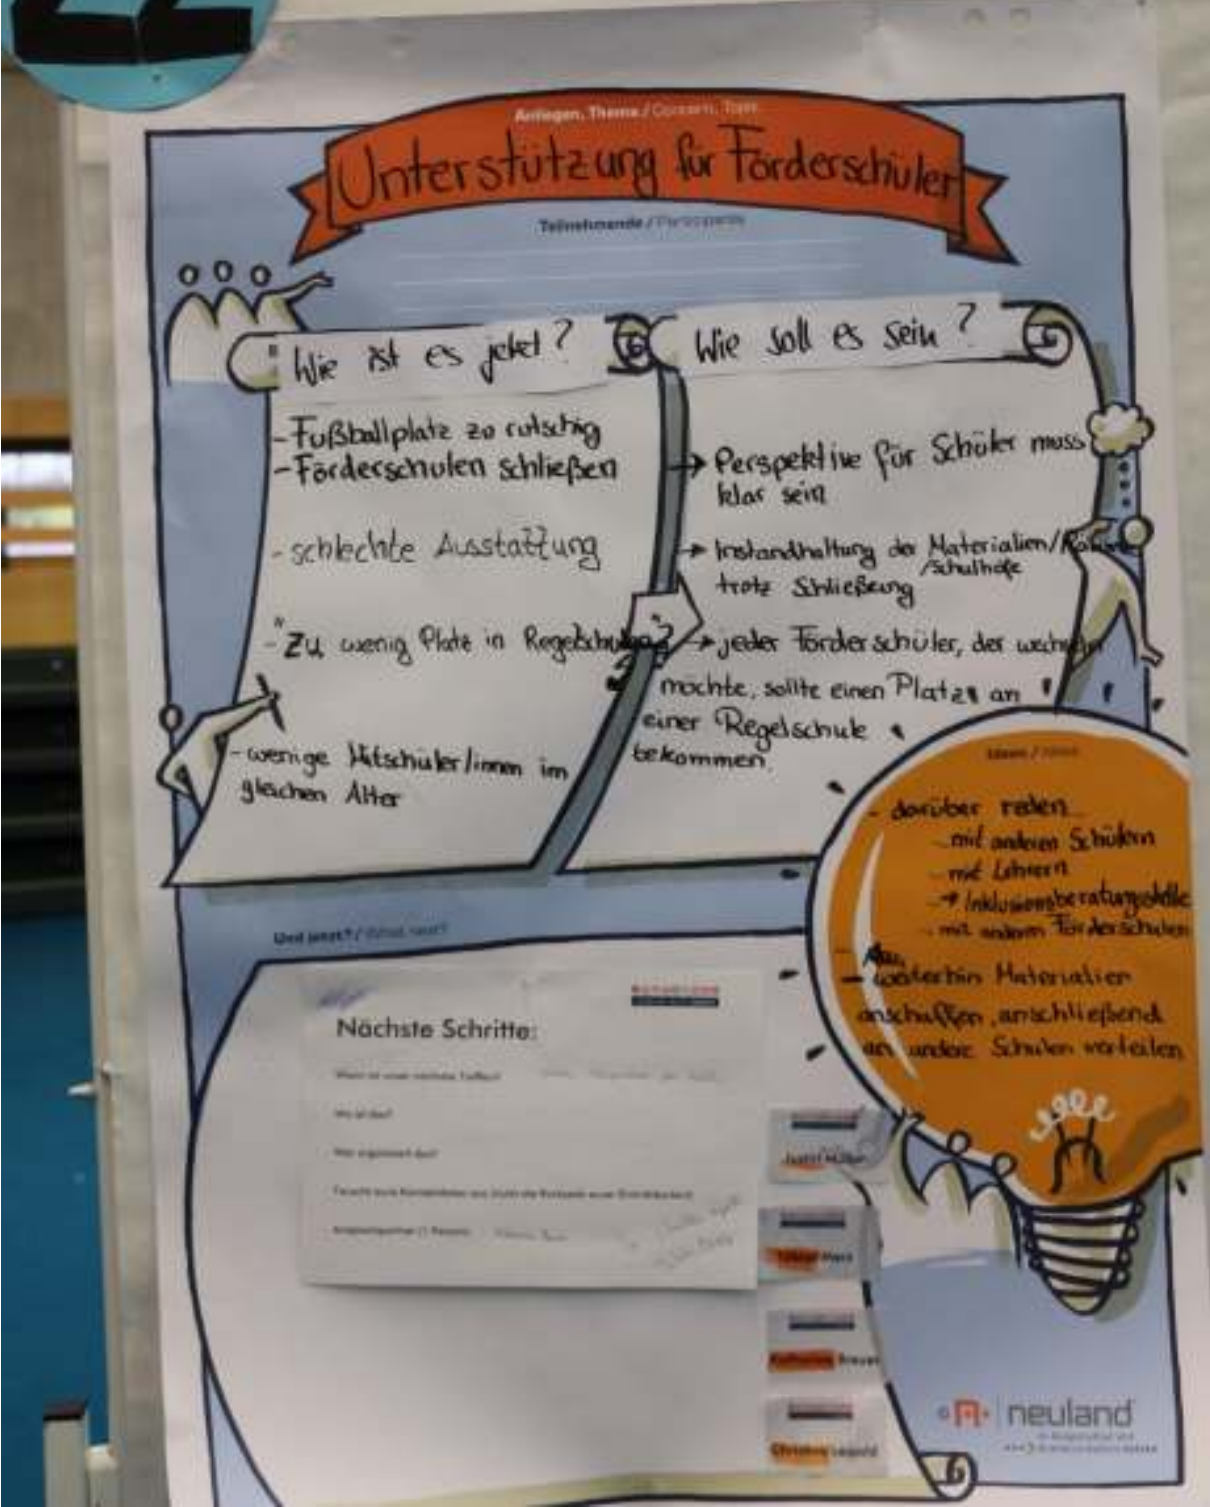 22
Anliegen, Thema / Concern, Topic
Unterstützung für Förderschüler
Teilnehmende / Participants
Wie ist es jetzt?
- Fußballplatz zu rutschig
- Förderschulen schließen
- schlechte Ausstattung
- "Zu wenig Platz in Regelschulen"?
- wenige Mitschüler/innen im
gleichen Alter
Wie soll es sein?
→ Perspektive für Schüler muss
klar sein
→ Instandhaltung der Materialien/Räume
/Schulhöfe
trotz Schließung
→ jeder Förderschüler, der wechseln
möchte, sollte einen Platz an
einer Regelschule
bekommen.
Ideen / Ideas
- darüber reden
- mit anderen Schülern
- mit Lehrern
- → Inklusionsberatungsstelle
- mit anderen Förderschulen
- weiterhin Materialien
anschaffen, anschließend
an andere Schulen verteilen
Und jetzt? / What next?
Nächste Schritte:
Wann ist euer nächstes Treffen?
Wo ist das?
Wer organisiert das?
Ansprechpartner (1 Person):
Justin Müller
Marx
Katharina Breuer
Christina Leopold
neuland